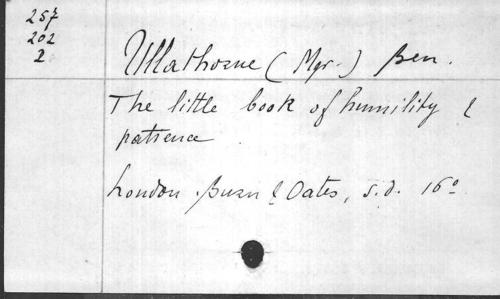 257
202
2
Ullathorne (Mgr.) Ben.
The little book of humility &
patience
London Burn & Oates, s.d. 16º